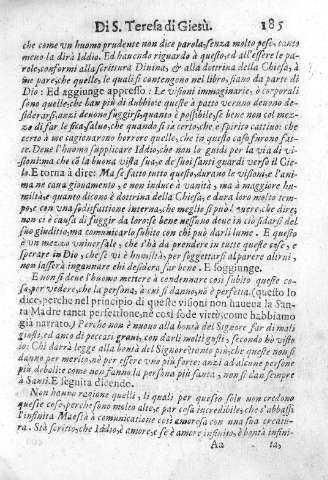 Di S. Teresa di Giesù. 185
che come vn huomo prudente non dice parola senza molto peso, tanto
meno la dirà Iddio. Ed hauendo riguardo à questo, ed all'essere le pa-
role conformi alla scrittura Diuina, & alla dottrina della Chiesa, à
me pare, che quelle, le quali si contengono nel libro, siano da parte di
Dio: Ed aggiunge appresso: Le visioni immaginarie, ò corporali
sono quelle, che han più di dubbio; e queste à patto veruno deuono de-
siderarsi, anzi deuono fuggirsi, quanto è possibile, se bene non col mez-
zo di far le fica, saluo, che quando si sà certo, che è spirito cattiuo: che
certo à me cagionarono horrore quelle, che in questo caso furono fat-
te. Deue l'huomo supplicare Iddio, che non lo guidi per la via di vi-
sioni, ma che cō la buona vista sua, e de suoi santi guardi verso il Cie-
lo. E torna à dire: Ma se fatto tutto questo, durano le visioni, e l'ani-
ma ne caua giouamento, e non induce à vanità, ma à maggiore hu-
miltà, e quanto dicono è dottrina della Chiesa, e dura loro molto tem-
po, e con vna sodisfattione interna, che meglio si può hauere, che dire,
non ci è causa di fuggir da loro: se bene nessuno deue in ciò fidarsi del
suo giuditio, ma comunicarlo subito con chi può darli lume. E questo
è vn mezzo vniuersale, che s'hà da prendere in tutte queste cose, e
sperare in Dio, che se vi è humiltà, per soggettarsi al parere altrui,
non lasserà ingannare chi desidera far bene. E soggiunge.
E non si deue l'huomo mettere à condennare così subito queste co-
se, per vedere, che la persona, à cui si danno, nō è perfetta. (questo lo
dice, perche nel principio di queste visioni non haueua la San-
ta Madre tanta perfettione, nè così sode virtù, come habbiamo
già narrato.) Perche nō è nuouo alla bontà del Signore far di mali
giusti, ed anco di peccati graui, con darli molti gusti, secondo hò visto
io: Chi darrà legge alla bontà del Signore? tanto più, che queste non si
danno per merito, nè per essere vno più forte: anzi ad alcune persone
più debolite come non fanno la persona più santa, non si dan sempre
à Santi. E seguita dicendo.
Non hauno ragione quelli, li quali per questo solo non credono
queste cose, perche sono molto alte, e par cosa incredibile, che s'abbassi
l'infinita Maestà à comunicatione così amorosa con vna sua creatu-
ra. Stà scritto, che Iddio, è amore, e se è amore infinito, è bontà infini-
Aa ta,